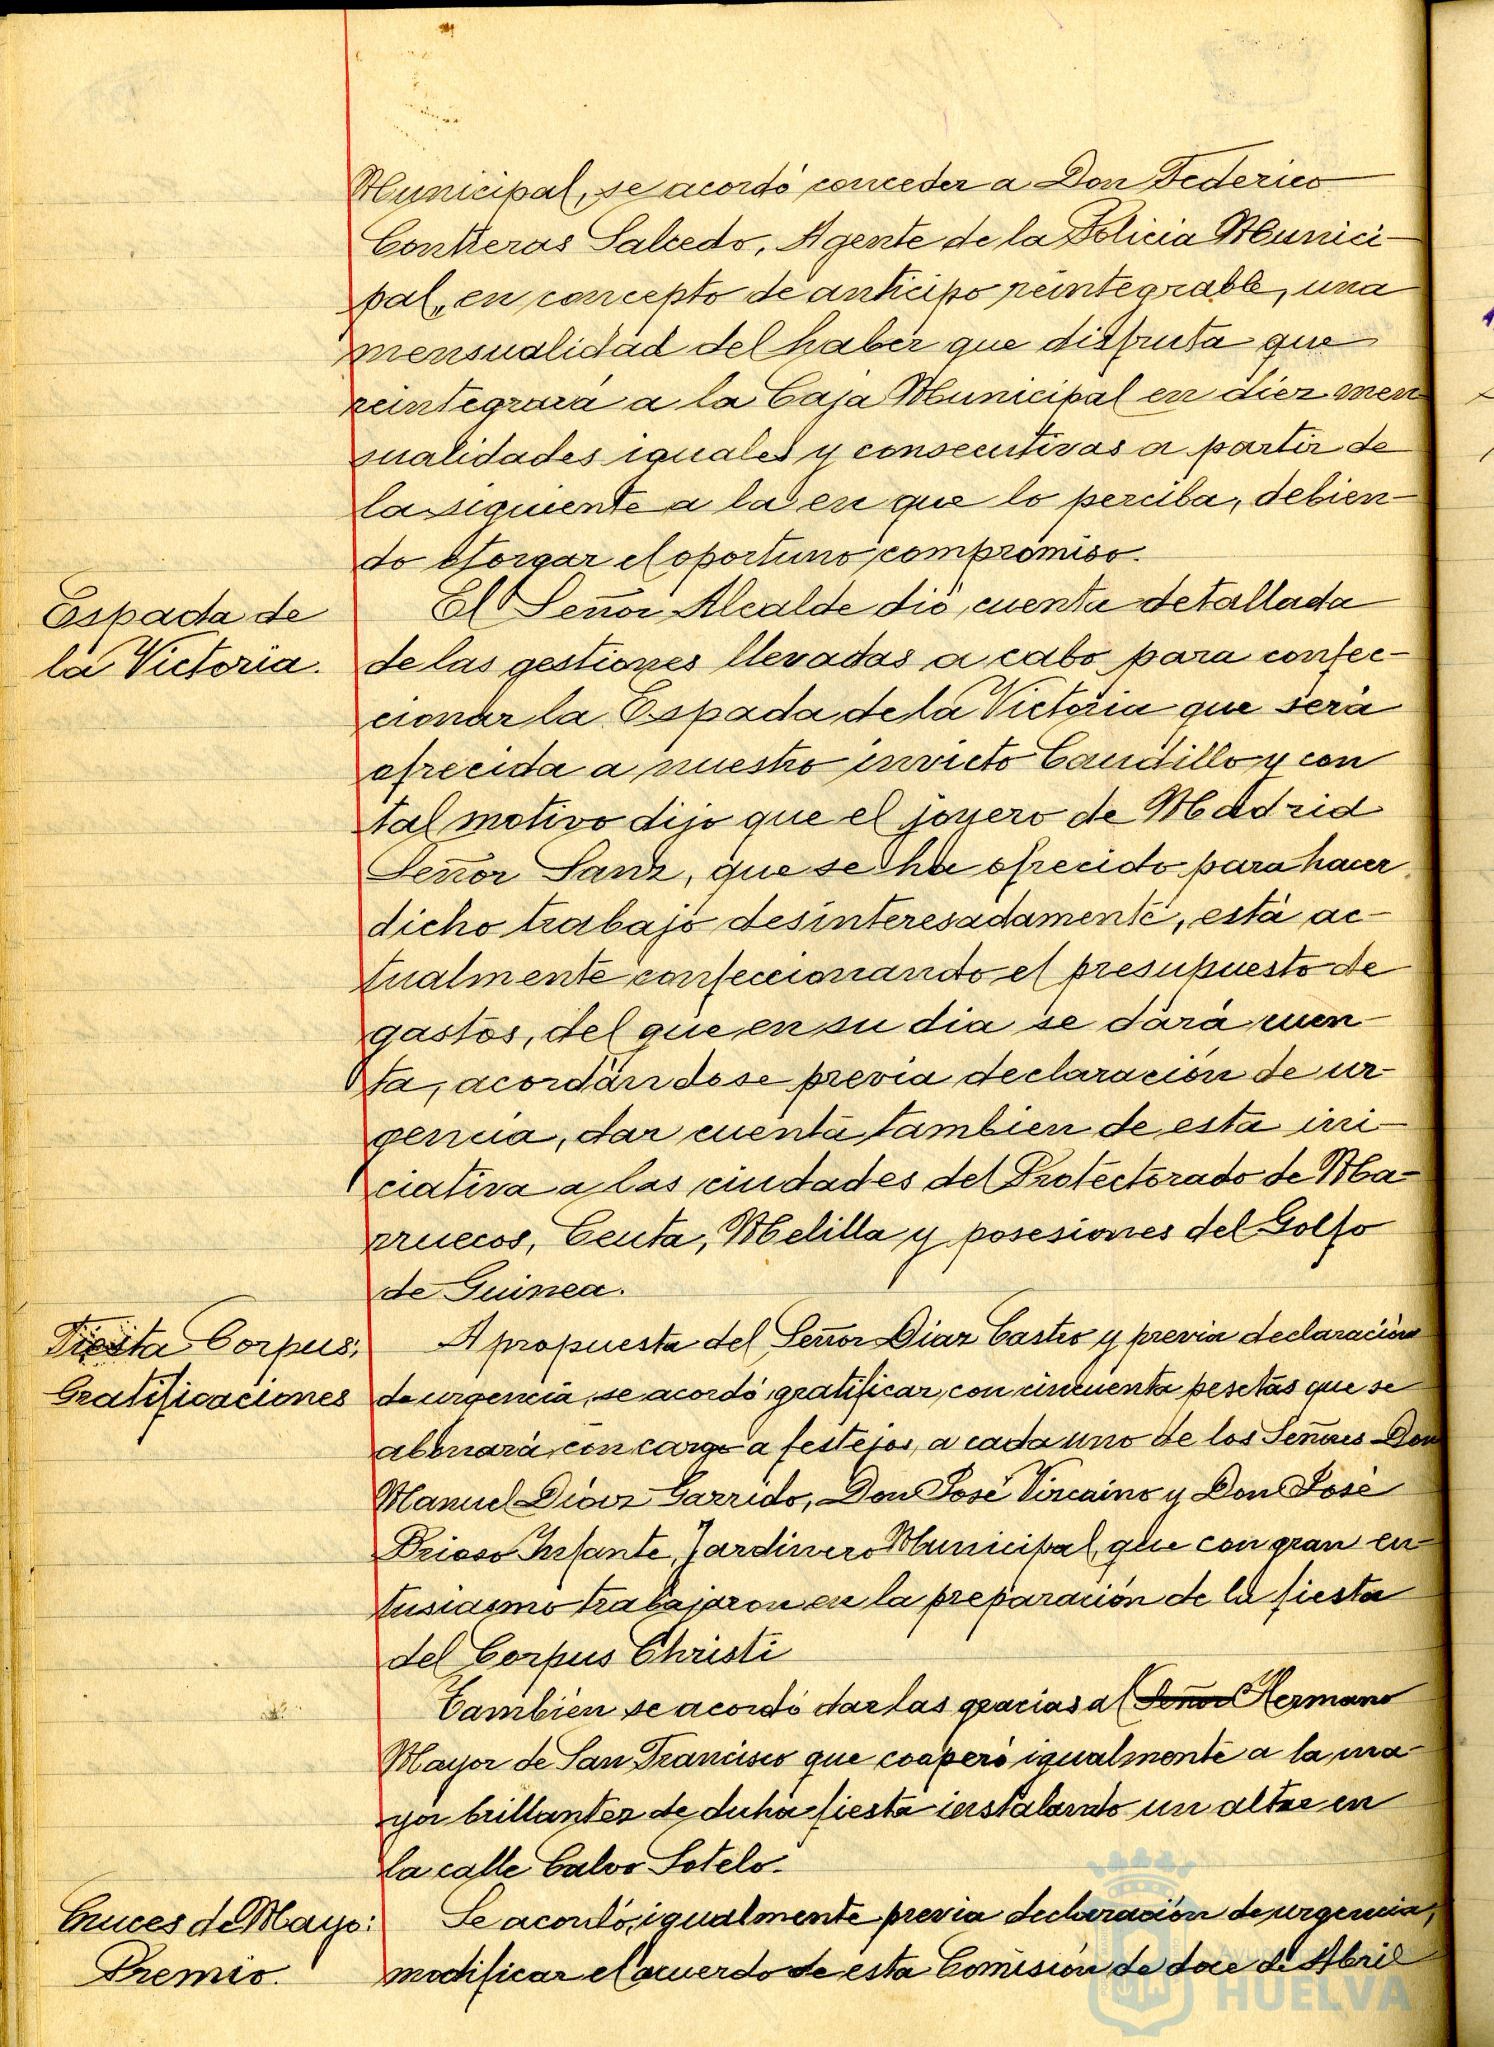 Municipal, se acordó conceder a Don Federico
Contreras Salcedo, Agente de la Policia Munici-
pal, en concepto de anticipo reintegrable, una
mensualidad del haber que disfruta que
reintegrará a la Caja Municipal en diez men
sualidades iguales y consecutivas a partir de
la siguiente a la en que lo perciba, debien-
do otorgar el oportuno compromiso.
Espada de
la Victoria.
El Señor Alcalde dió cuenta detallada
de las gestiones llevadas a cabo para confec-
cionar la Espada de la Victoria que será
ofrecida a nuestro invicto Caudillo y con
tal motivo dijo que el joyero de Madrid
Señor Sanz, que se ha ofrecido para hacer
dicho trabajo desinteresadamente, está ac-
tualmente confeccionando el presupuesto de
gastos, del que en su dia se dará cuen-
ta, acordándose previa declaración de ur-
gencia, dar cuenta tambien de esta ini-
ciativa a las ciudades del Protectorado de Ma-
rruecos, Ceuta, Melilla y posesiones del Golfo
de Guinea.
Fiesta Corpus;
Gratificaciones
A propuesta del Señor Diaz Castro y previa declaración
de urgencia se acordó gratificar con cincuenta pesetas que se
abonará con cargo a festejos, a cada uno de los Señores Don
Manuel Diaz Garrido, Don José Vizcaino y Don José
Prioso Infante, Jardinero Municipal, que con gran en-
tusiasmo trabajaron en la preparación de la fiesta
del Corpus Christi
También se acordó dar las gracias al Señor Hermano
Mayor de San Francisco que cooperó igualmente a la ma-
yor brillantez de dicha fiesta instalando un altar en
la calle Calvo Sotelo.
Cruces de Mayo:
Premio.
Se acordó, igualmente previa declaración de urgencia,
modificar el acuerdo de esta Comisión de doce de Abril
HUELVA